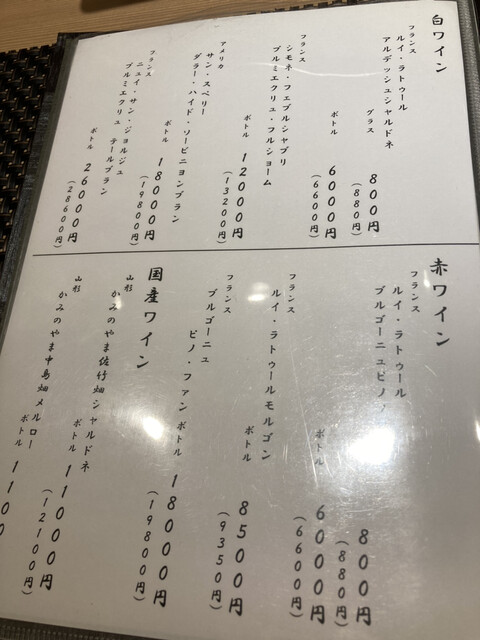 白ワイン
フランス
ルイ・ラトゥール
アルデッシュシャルドネ
グラス 800円
(880円)
ボトル 6000円
(6600円)
フランス
シモネ・フェブルシャブリ
プルミエクリュ・フルショーム
ボトル 12000円
(13200円)
アメリカ
サン・スペリー
ダラー・ハイド・ソービニヨンブラン
ボトル 18000円
(19800円)
フランス
ニュイ・サン・ジョルジュ
プルミエクリュ テールブラン
ボトル 26000円
(28600円)
赤ワイン
フランス
ルイ・ラトゥール
ブルゴーニュピノノ
800円
(880円)
ボトル 6000円
(6600円)
フランス
ルイ・ラトゥールモルゴン
8500円
(9350円)
フランス
ブルゴーニュ
ピノ・ファン
ボトル 18000円
(19800円)
国産ワイン
山形
かみのやま佐竹畑シャルドネ
ボトル 11000円
(12100円)
山形
かみのやま中島畑メルロー
ボトル 1100